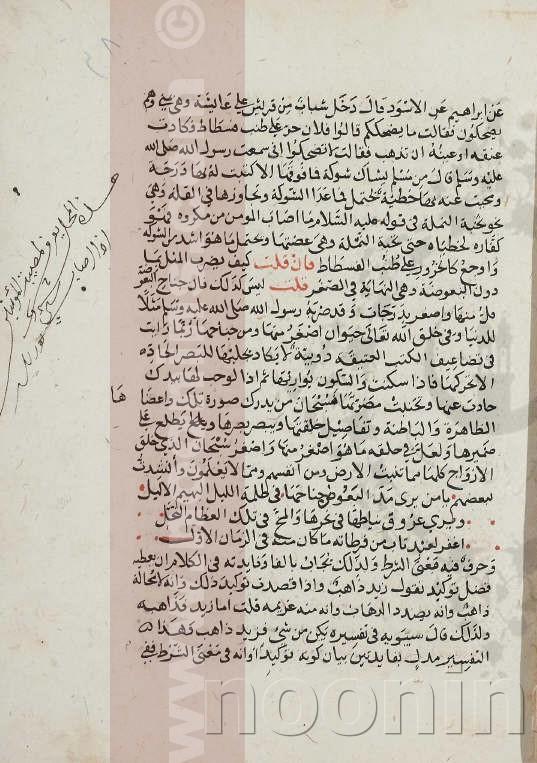 عن ابراهيم عن الاسود قال دخل شباب من قريش على عائشة وهي بمنى وهم
يضحكون فقالت ما يضحككم قالوا فلان خر على طنب فسطاط فكادت
عنقه او عينه ان تذهب فقالت لا تضحكوا اني سمعت رسول الله صلى الله
عليه وسلم قال من مسلم يشاك شوكة فما فوقها الا كتبت له بها درجة
ومحيت عنه بها خطيئة يحتمل فما عدا الشوكة وتجاوزها في القلة وهي
نحو نخبة النملة في قوله عليه السلام ما اصاب المومن من مكروه فهو
كفارة لخطاياه حتى نخبة النملة وهي عضتها ويحتمل ما هو اشد من الشوكة
واوجع كالخرور على طنب الفسطاط فان قلت كيف يضرب المثل بما
دون البعوضة وهي النهاية في الصغر قلت ليس كذلك فان جناح البعوضة
اقل منها واصغر بدرجات وقد ضربه رسول الله صلى الله عليه وسلم مثلا
للدنيا وفي خلق الله تعالى حيوان اصغر منها ومن جناحها ربما رايت
في تضاعيف الكتب العتيقة دويبة لا يكاد يجليها للبصر الحاد
الا تحركها فاذا سكنت فالسكون يواريها ثم اذا لوحت لها بيدك
حادت عنها وتجنبت مضرتها فسبحان من يدرك صورة تلك واعضا
ها
الظاهرة والباطنة وتفاصيل خلقتها ويبصر بصرها ويطلع على
ضميرها ولعل في خلقه ما هو اصغر منها واصغر سبحان الذي خلق
الازواج كلها مما تنبت الارض ومن انفسهم ومما لا يعلمون وانشدت
لبعضهم يا من يرى مد البعوض جناحها في ظلمة الليل البهيم الاليل
ويرى عروق نياطها في نحرها والمخ في تلك العظام النحل
اغفر لعبد تاب من فرطاته ما كان منه في الزمان الاول
وحرف فيه معنى الشرط ولذلك يجاب بالفا وفايدته في الكلام ان يعطيه
فضل توكيد تقول زيد ذاهب فاذا قصدت توكيد ذلك وانه لا محالة
ذاهب وانه بصدد الذهاب وانه منه عزيمة قلت اما زيد فذاهب
ولذلك قال سيبويه في تفسيره مهما يكن من شي فزيد ذاهب وهذا
التفسير مدل بفايدتين بيان كونه توكيدا وانه في معنى الشرط ففي
www. ©
noonin